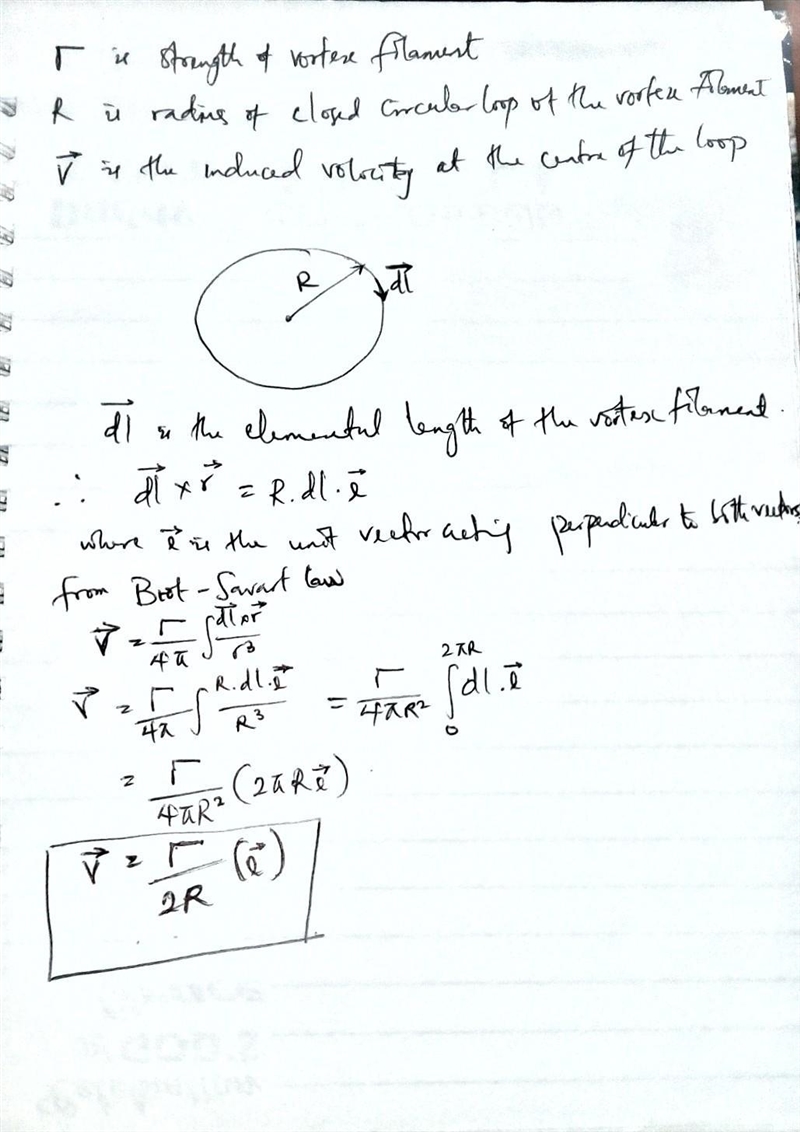 Γ is strength of vortex filament
R is radius of closed circular loop of the vortex filament
V⃗ is the induced velocity at the centre of the loop
R
dl⃗
dl⃗ is the elemental length of the vortex filament.
∴ dl⃗ × r⃗ = R.dl.e⃗
where e⃗ is the unit vector acting perpendicular to both vectors
from Biot-Savart law
V⃗ = Γ/4π ∫ dl⃗×r⃗/r³
V⃗ = Γ/4π ∫ R.dl.e⃗/R³ = Γ/4πR² ∫₀^2πR dl.e⃗
= Γ/4πR² (2πRe⃗)
V⃗ = Γ/2R (e⃗)